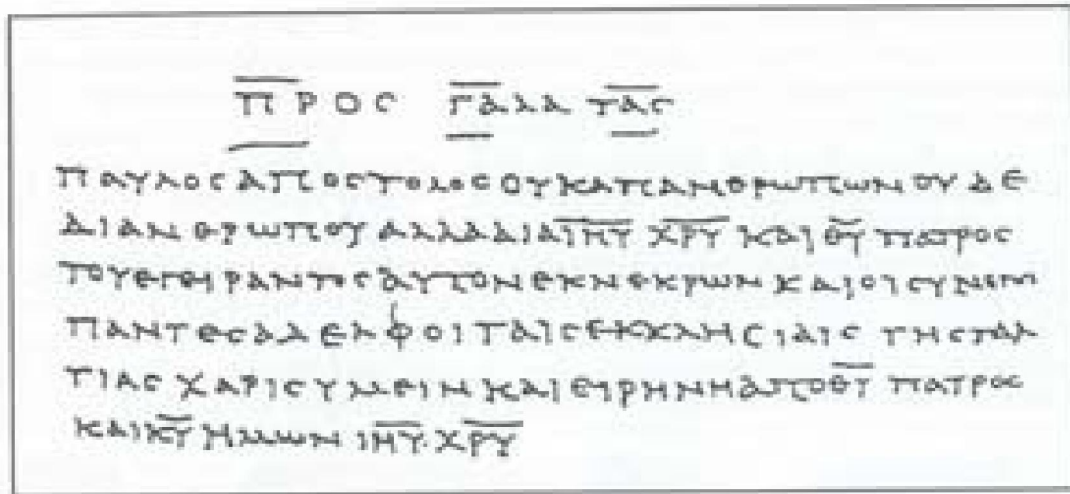 ΠΡΟϹ ΓΑΛΑΤΑϹ
ΠΑΥΛΟϹΑΠΟϹΤΟΛΟϹΟΥΚΑΠΑΝΘΡΩΠΩΝΟΥΔΕ
ΔΙΑΝΘΡΩΠΟΥΑΛΛΑΔΙΑΙΗΥ ΧΡΥ ΚΑΙΘΥ ΠΑΤΡΟϹ
ΤΟΥΕΓΕΙΡΑΝΤΟϹΑΥΤΟΝΕΚΝΕΚΡΩΝΚΑΙΟΙϹΥΝΕΜ
ΠΑΝΤΕϹΑΔΕΛΦΟΙΤΑΙϹΕΚΚΛΗϹΙΑΙϹ ΤΗϹΓΑΛ
ΤΙΑϹ ΧΑΡΙϹΥΜΕΙΝΚΑΙΕΙΡΗΝΗΑΠΟΘΥ ΠΑΤΡΟϹ
ΚΑΙΚΥ ΗΜΩΝ ΙΗΥ ΧΡΥ